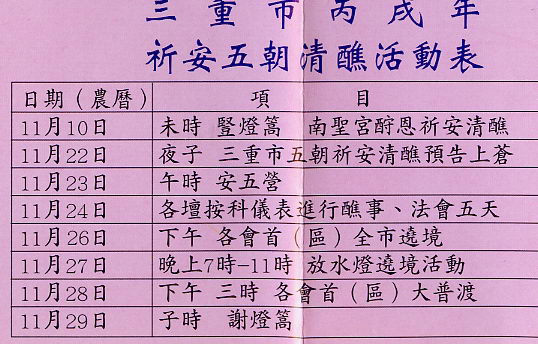 三重市丙戌年
祈安五朝清醮活動表
日期（農曆） 項 目
11月10日 未時 豎燈篙 南聖宮酧恩祈安清醮
11月22日 夜子 三重市五朝祈安清醮預告上蒼
11月23日 午時 安五營
11月24日 各壇按科儀表進行醮事、法會五天
11月26日 下午 各會首（區）全市遶境
11月27日 晚上7時-11時 放水燈遶境活動
11月28日 下午 三時 各會首（區）大普渡
11月29日 子時 謝燈篙